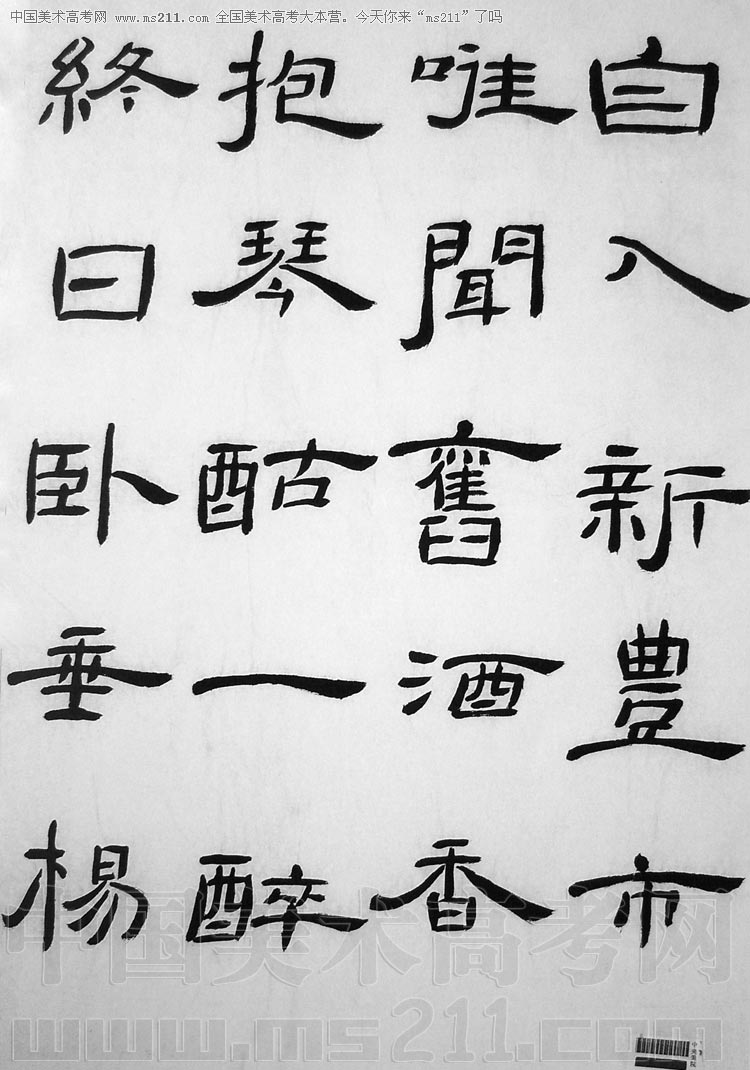 中国美术高考网 www.ms211.com 全国美术高考大本营。今天你来“ms211”了吗
自入新豐市
唯聞舊酒香
抱琴酤一醉
終日卧垂楊
中国美术高考网
www.ms211.com